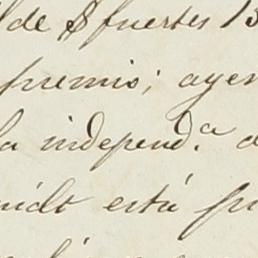 de $ fuertes 13
premio; ayer
la independ.ª
está